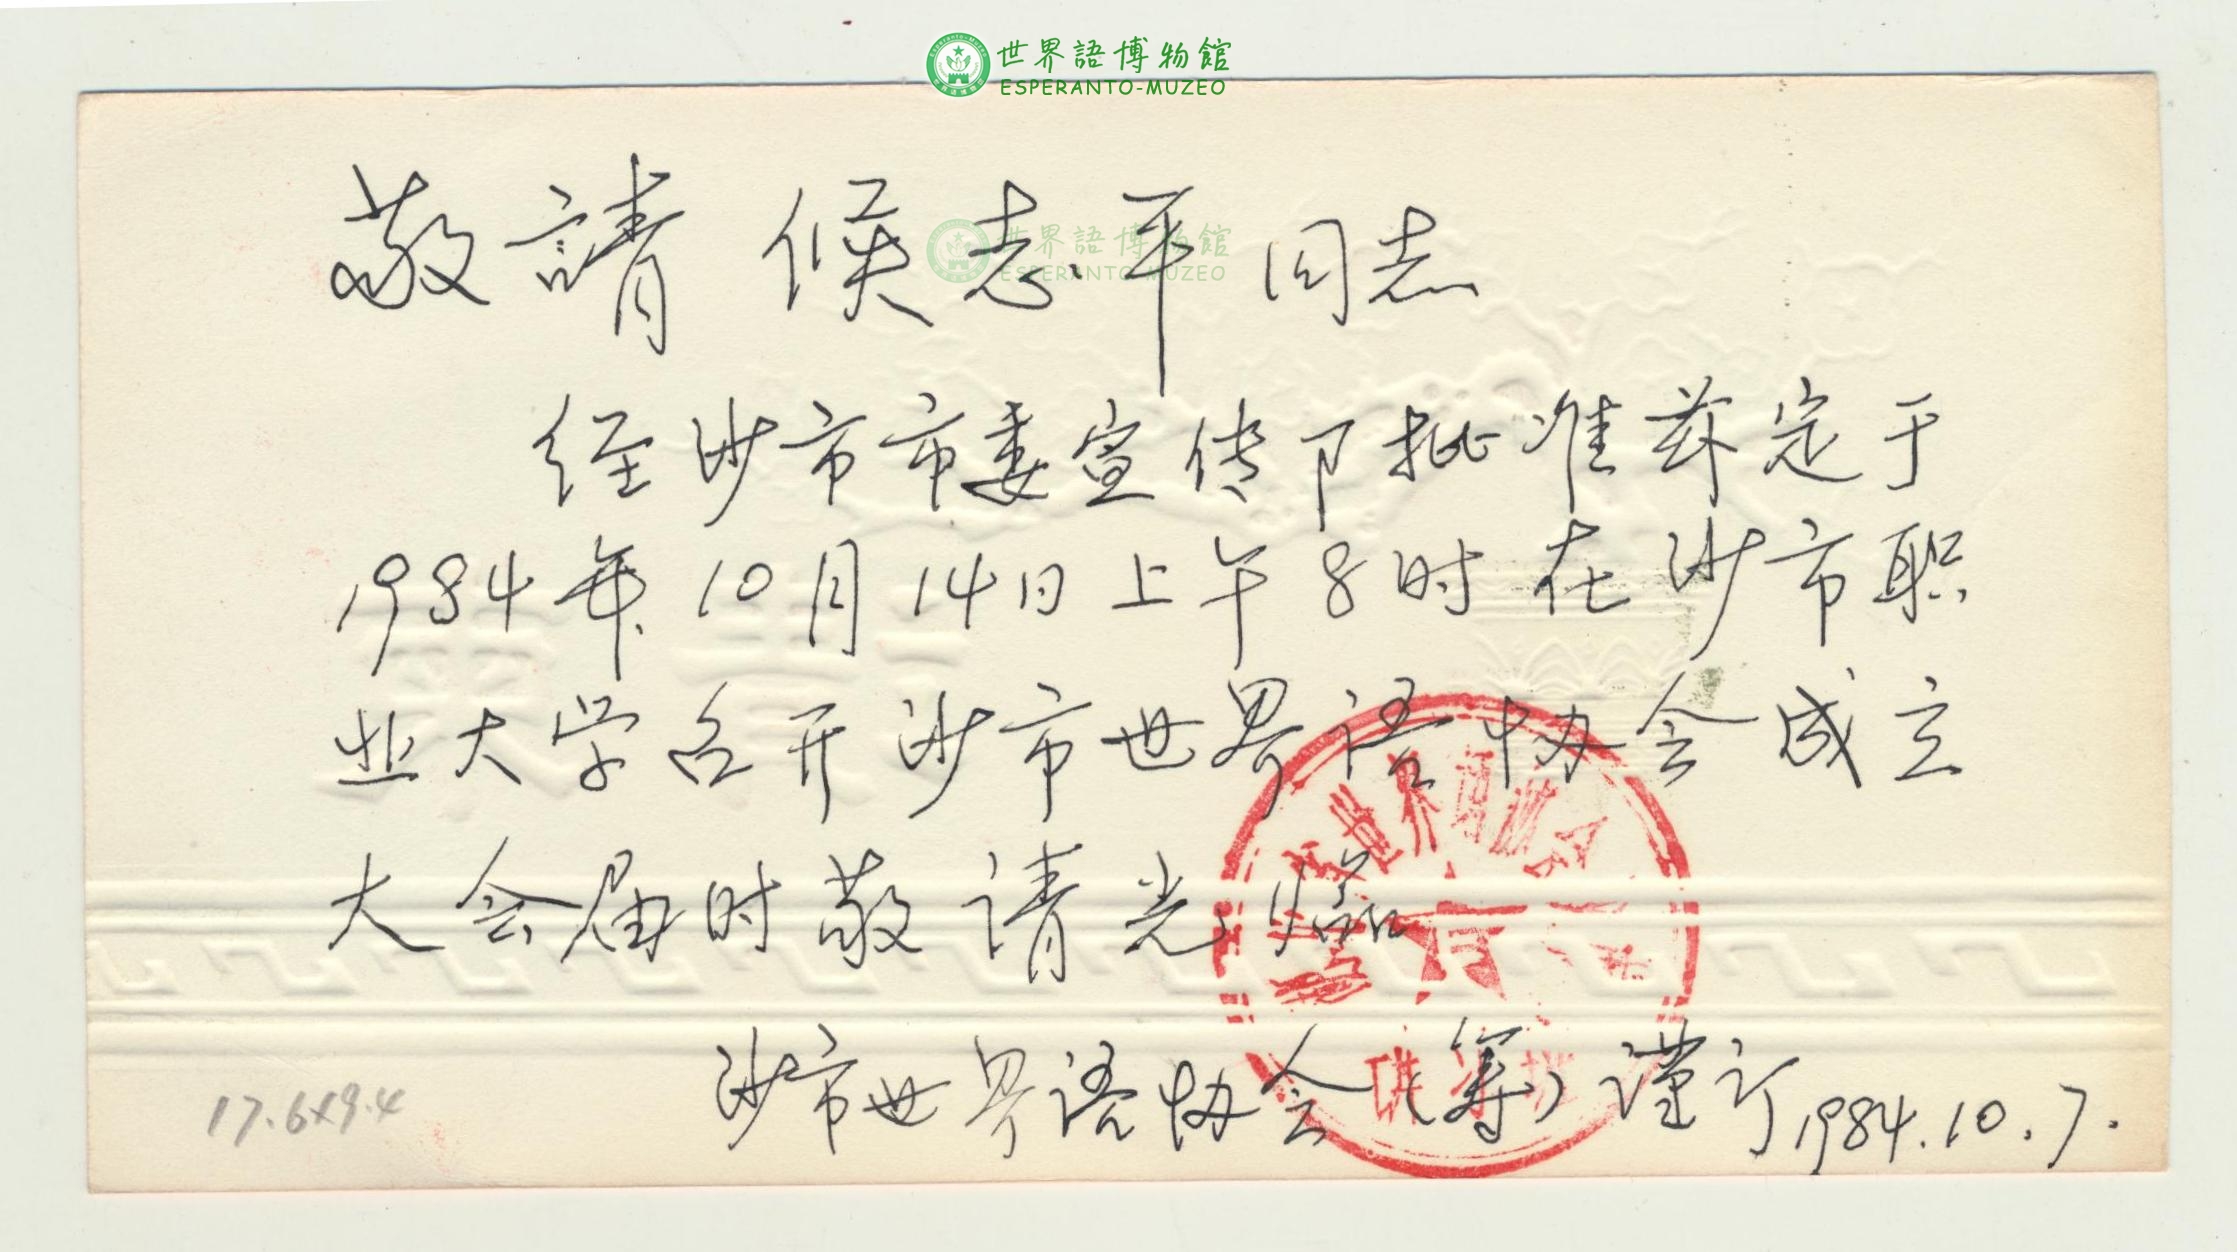 世界語博物館
ESPERANTO-MUZEO
敬請 候志平 同志
世界語博物館
ESPERANTO-MUZEO
经沙市市委宣传卩批准兹定于
1984年10月14日上午8时在沙市职
业大学召开沙市世界语协会成立
大会届时敬请光临
沙市世界语协会(筹)谨订1984.10.7.
17.6x9.4